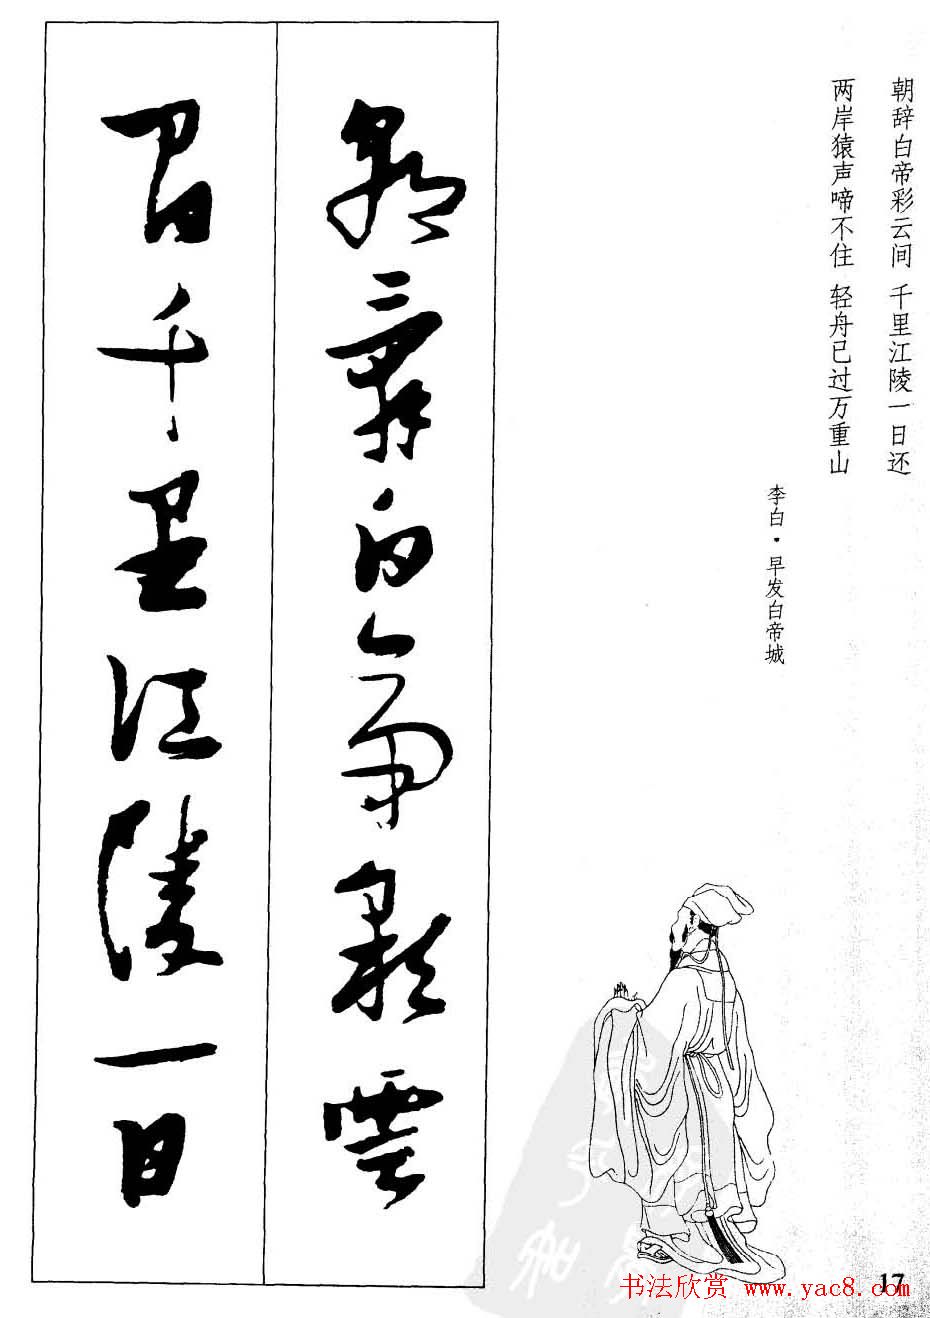 朝辞白帝彩云间 千里江陵一日还
两岸猿声啼不住 轻舟已过万重山
李白·早发白帝城
朝辭白帝彩雲
間千里江陵一日
17
书法欣赏 www.yac8.com